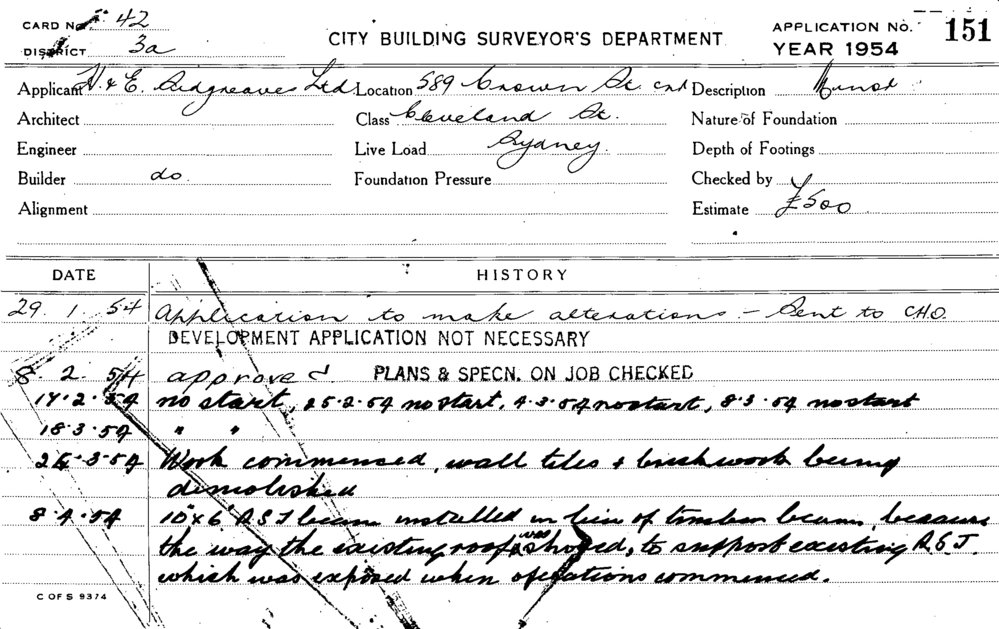 CARD No. 42
DISTRICT 3a
CITY BUILDING SURVEYOR'S DEPARTMENT
APPLICATION No. 151
YEAR 1954
Applicant H. & E. Sidgreaves Ltd. Location 589 Crown St. cnr Description
Architect Class Cleveland St. Nature of Foundation
Engineer Live Load Sydney. Depth of Footings
Builder do. Foundation Pressure Checked by
Alignment Estimate £500
DATE HISTORY
29. 1. 54 Application to make alterations - Sent to CHO.
DEVELOPMENT APPLICATION NOT NECESSARY
8 2. 54 approved. PLANS & SPECN. ON JOB CHECKED
17.2.54 no start, 25.2.54 no start, 4.3.54 no start, 8.3.54 no start
18.3.54 " "
3.54 Work commenced, wall tiles & brickwork being
demolished
8.4.54 10"x6" R.S.J beam installed in lieu of timber beam, because
the way the existing roof was shored, to support existing R.S.J.
which was exposed when operations commenced.
C OF S 9374